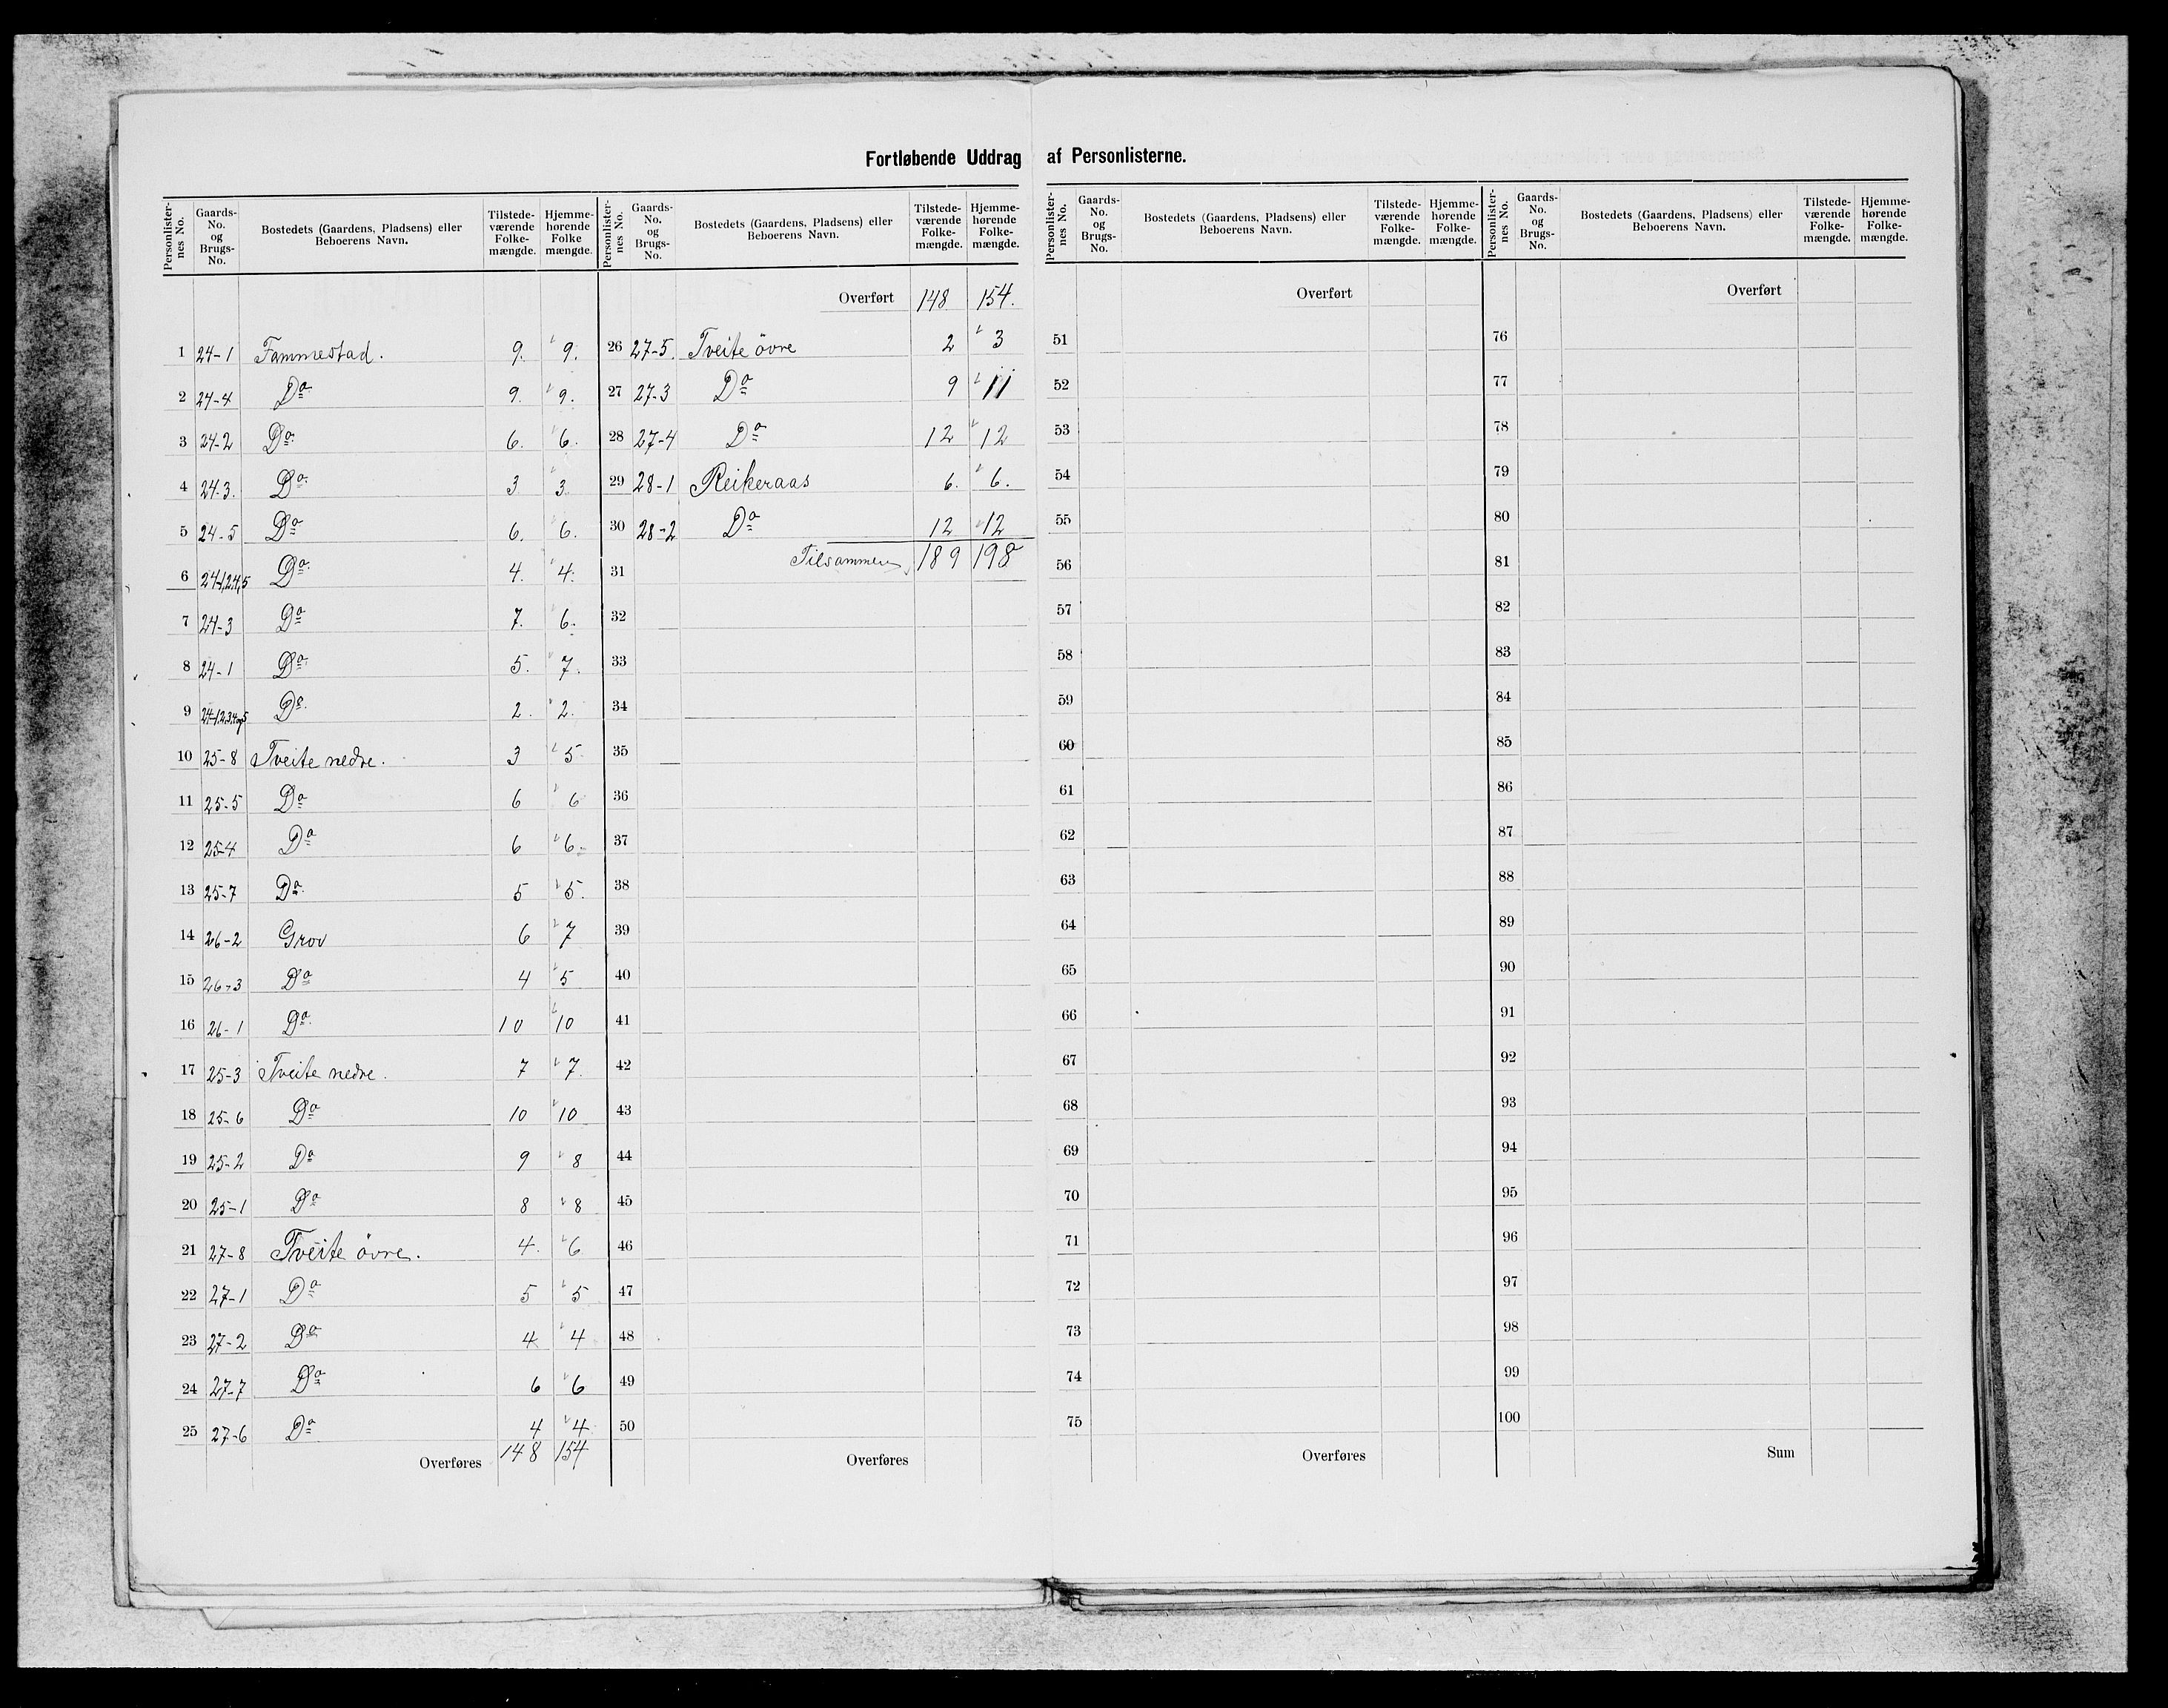 Fortløbende Uddrag af Personlisterne.
Personlister-nes No. | Gaards-No. og Brugs-No. | Bostedets (Gaardens, Pladsens) eller Beboerens Navn. | Tilstede-værende Folke-mængde. | Hjemme-hørende Folke mængde.
1 24-1 Fammestad. 9. 9.
2 24-4 Do. 9. 9.
3 24-2 Do. 6. 6.
4 24-3. Do. 3 3.
5 24-5 Do 6. 6.
6 24-1,2,4,5 Do. 4. 4.
7 24-3 Do 7. 6.
8 24-1 Do. 5. 7.
9 24-1,2,3,4og5 Do. 2. 2.
10 25-8 Tveite nedre. 3 5
11 25-5 Do 6 6
12 25-4 Do 6 6.
13 25-7 Do. 5 5.
14 26-2 Grov 6 7
15 26-3 Do 4 5
16 26-1 Do. 10 10
17 25-3 Tveite nedre. 7 7.
18 25-6 Do 10 10
19 25-2 Do 9 8
20 25-1 Do 8 8
21 27-8 Tveite övre. 4. 6
22 27-1 Do 5 5
23 27-2 Do 4 4
24 27-7 Do 6 6
25 27-6 Do 4 4
Overføres 148 154
Personlister-nes No. | Gaards-No. og Brugs-No. | Bostedets (Gaardens, Pladsens) eller Beboerens Navn. | Tilstede-værende Folke-mængde. | Hjemme-hørende Folke-mængde.
Overført 148 154.
26 27-5. Tveite övre 2 3
27 27-3 Do 9 11
28 27-4 Do 12 12
29 28-1 Reikeraas 6. 6.
30 28-2 Do 12 12
31 Tilsammen 189 198
32
33
34
35
36
37
38
39
40
41
42
43
44
45
46
47
48
49
50
Overføres
Personlister-nes No. | Gaards-No. og Brugs-No. | Bostedets (Gaardens, Pladsens) eller Beboerens Navn. | Tilstede-værende Folke-mængde. | Hjemme-hørende Folke-mængde.
Overført
51
52
53
54
55
56
57
58
59
60
61
62
63
64
65
66
67
68
69
70
71
72
73
74
75
Overføres
Personlister-nes No. | Gaards-No. og Brugs-No. | Bostedets (Gaardens, Pladsens) eller Beboerens Navn. | Tilstede-værende Folke-mængde. | Hjemme-hørende Folke-mængde.
Overført
76
77
78
79
80
81
82
83
84
85
86
87
88
89
90
91
92
93
94
95
96
97
98
99
100
Sum